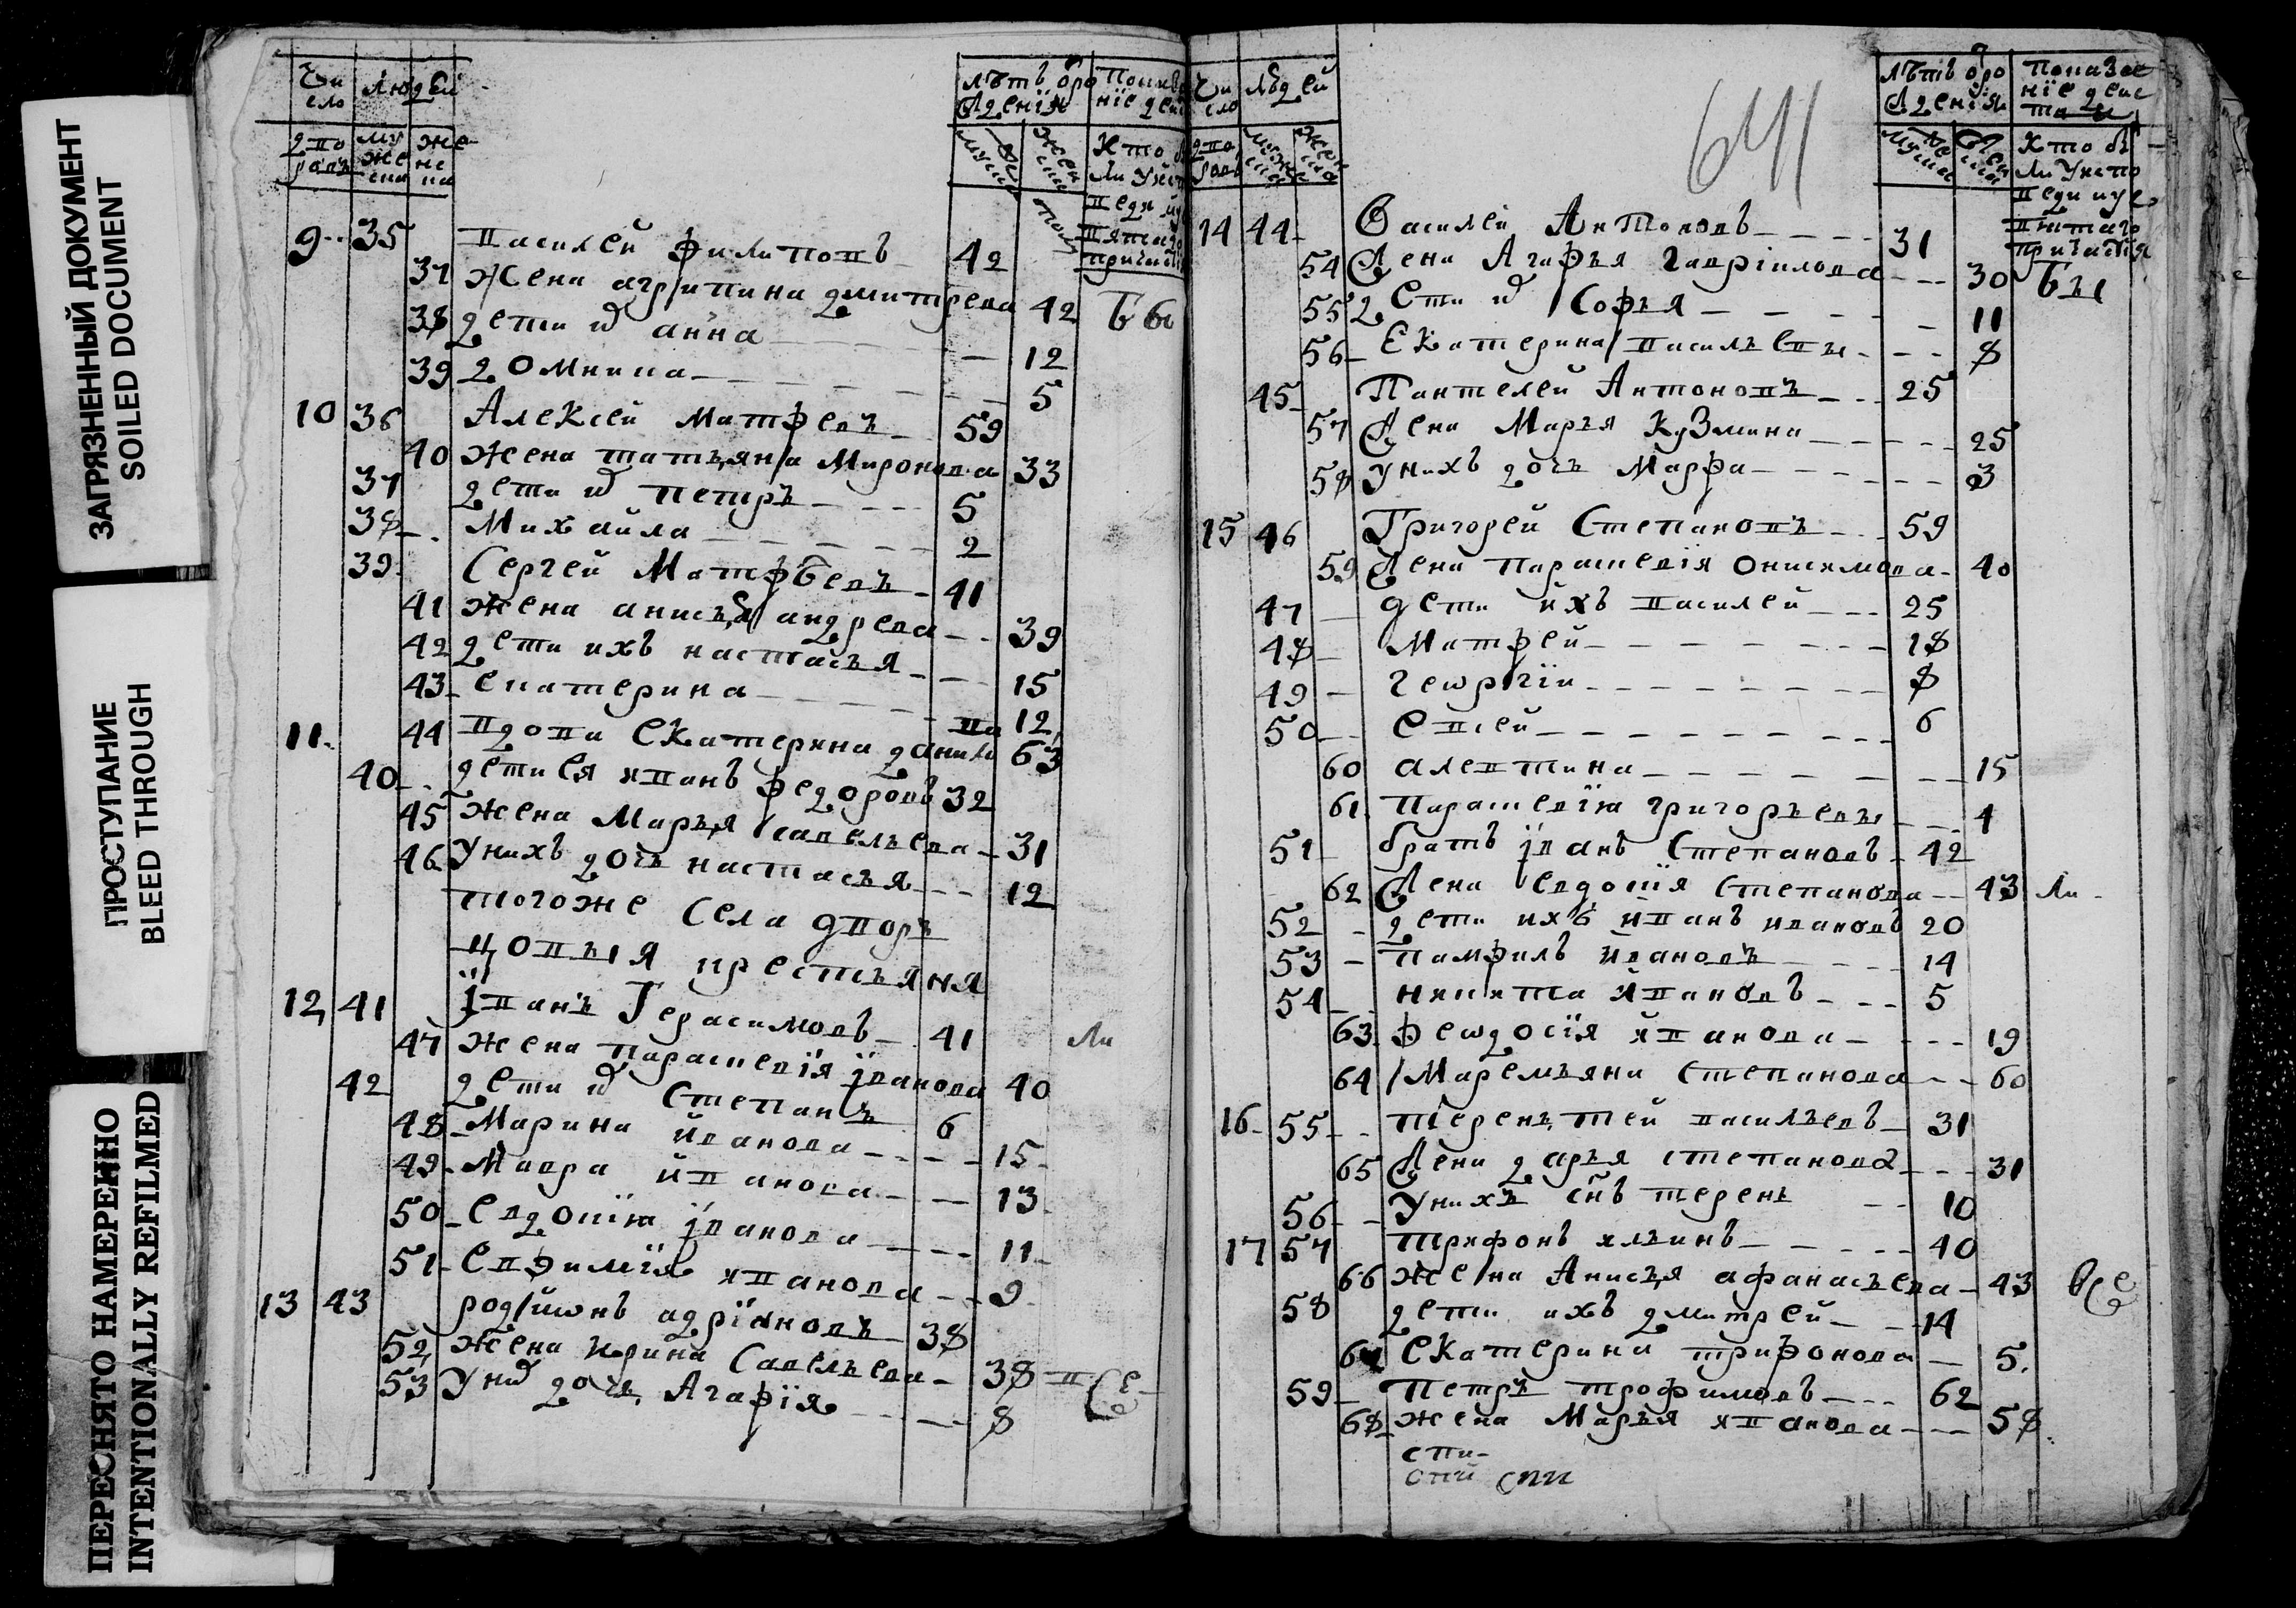 ЗАГРЯЗНЕННЫЙ ДОКУМЕНТ
SOILED DOCUMENT
ПРОСТУПАНИЕ
BLEED THROUGH
ПЕРЕСНЯТО НАМЕРЕННО
INTENTIONALLY REFILMED
Чи сло людей
лѣтъ ѿро жденїя
9 35 Василей Филиповъ 42
37 Жена агрипина дмитрева 42 бы
38 дети и҆ анна 12
39 домника 5
10 36 Алексей матфевъ 59
40 Жена татьяна Миронова 33
37 дети и҆ петръ 5
38 Михайла 2
39 Сергей Матфѣевъ 41
41 Жена анисья андрева 39
42 дети ихъ настасья 15
43 екатерина 12
11 44 вдова Екатерина данилова 63
40 дети ея иванъ федоровъ 32
45 Жена Марья савельева 31
46 Унихъ дочь настасья 12
тогоже Села двор
цовыя крестьяня
12 41 Їванъ Герасимовъ 41 ли
47 жена парасковия їванова 40
42 дети и҆ степанъ 6
48 Марина иванова 15
49 Мавра иванова 13
50 Евдокїя їванова 11
51 Евфимїя иванова 9
13 43 родїѡнъ адрїяновъ 38
52 Жена ирина Савельева 38 все
53 Уних дочь Агафїя 8
641
Чи сло людей
лѣтъ ѿро жденїя
Показа нїе дейс тва
Кто бы ли у испо веди и у с вятаго причастїя
14 44 Василей Антоновъ 31
54 Жена Агафья гаврїилова 30 бы
55 дети и҆ Софья 11
56 Екатерина васильевы 8
45 Пантелей Антоновъ 25
57 Жена Марья Кузмина 25
58 унихъ дочь Марфа 3
15 46 Григорей Степановъ 59
59 Жена парасковия онисимова 40
47 дети ихъ василей 25
48 Матфей 18
49 геѡргїи 8
50 Евсей 6
60 алевтина 15
61 парасковїя григорьевы 4
51 братъ їванъ Степановъ 42
62 Жена евдокїя степанова 43 ли
52 дети ихъ иванъ ивановъ 20
53 памфилъ ивановъ 14
54 никита ивановъ 5
63 феѡдосїя иванова 19
64 Маремьяна степанова 60
16 55 терентей васильевъ 31
65 Жена дарья степанова 31
56 Унихъ сн҃ъ терень 10
17 57 трифонъ ильинъ 40
66 жена Анисья афанасьева 43 все
58 дети ихъ дмитрей 14
67 Екатерина трифонова 5
59 Петръ трофимовъ 62
68 жена Марья иванова 58
спи
спи спи